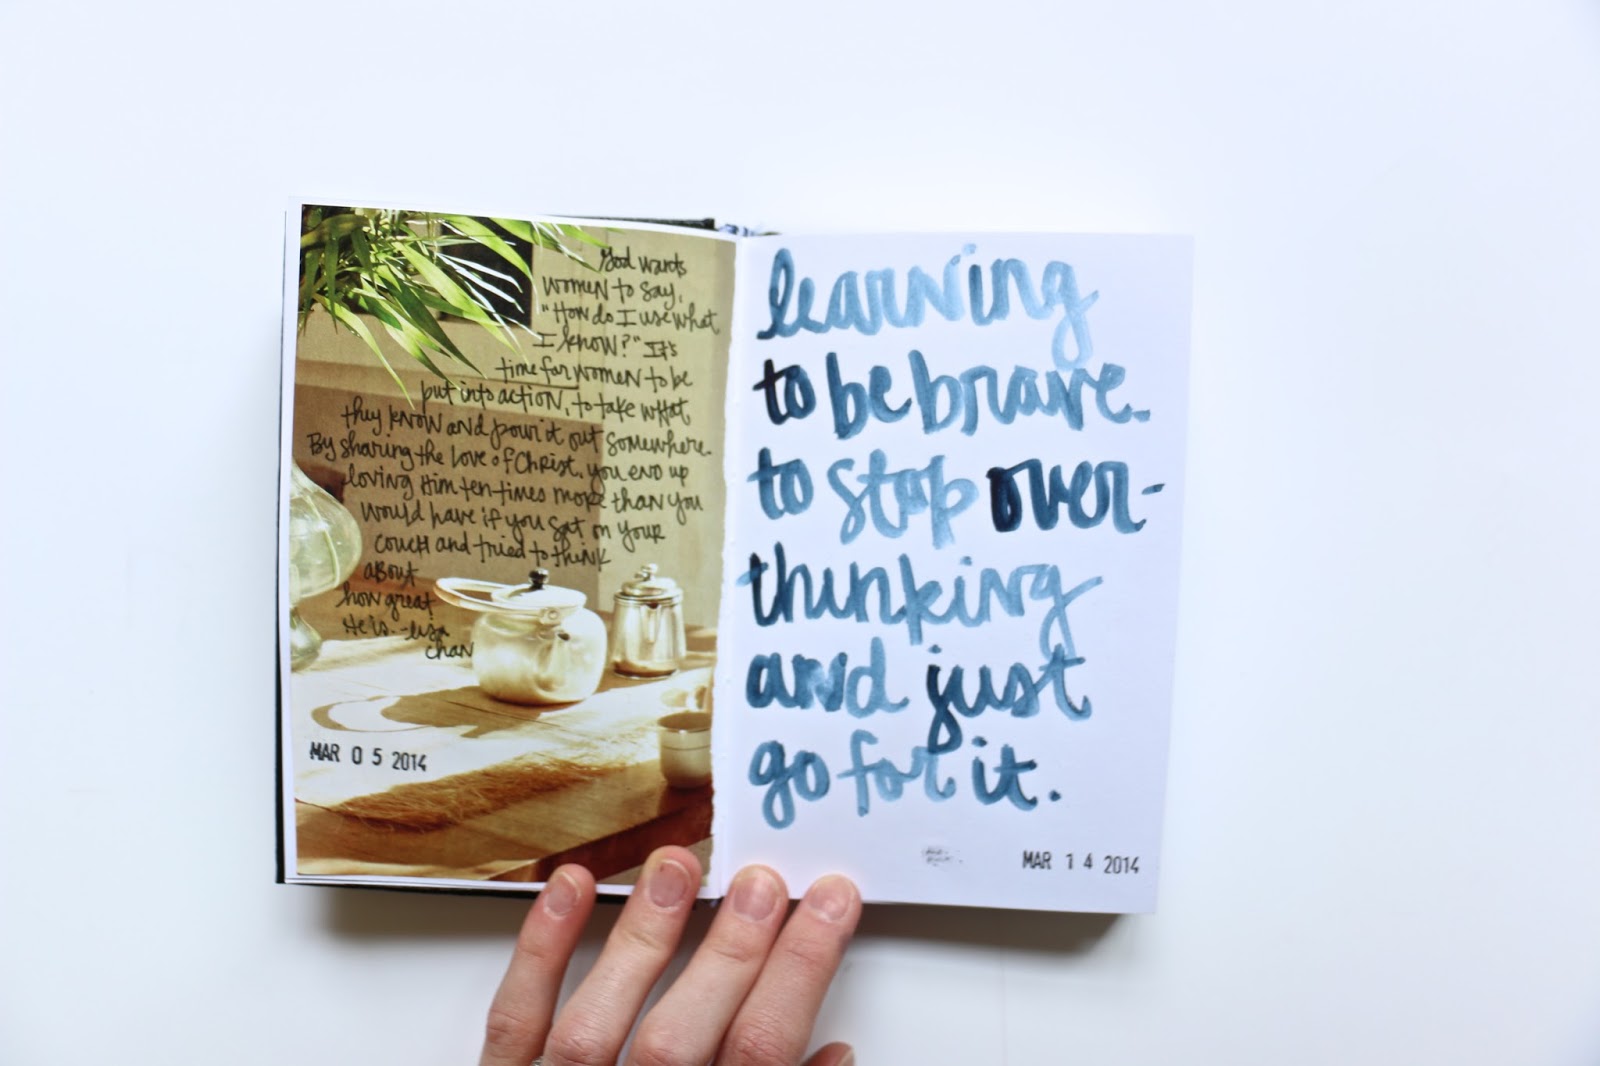 God wants
women to say,
"How do I use what
I know?" It's
time for women to be
put into action, to take what
they know and pour it out somewhere.
By sharing the love of Christ, you end up
loving Him ten-times more than you
would have if you sat on your
couch and tried to think
about
how great
He is. -lisa
chan
MAR 05 2014
learning
to be brave.
to stop over-
thinking
and just
go for it.
MAR 14 2014